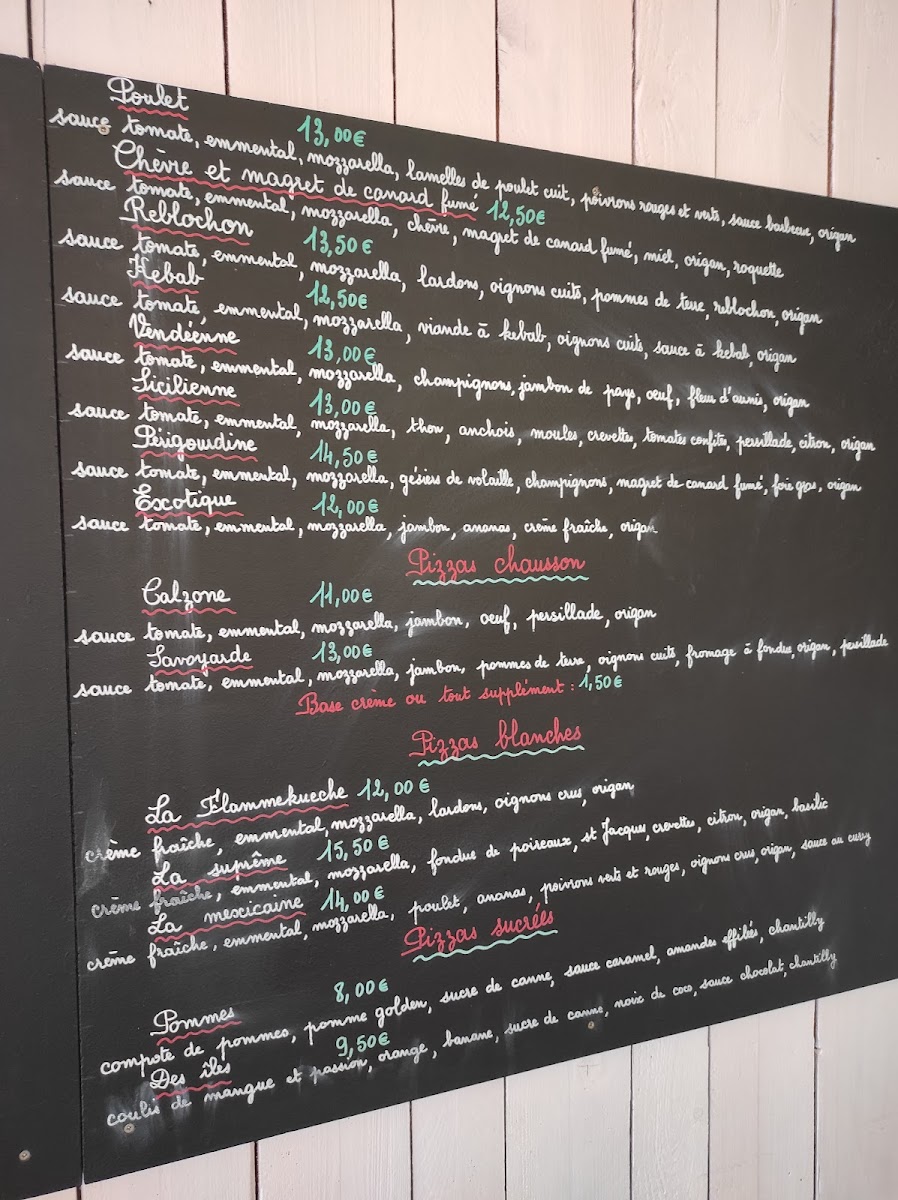 Poulet 13,00€
sauce tomate, emmental, mozzarella, lamelles de poulet cuit, poivrons rouges et verts, sauce barbecue, origan
Chèvre et magret de canard fumé 12,50€
sauce tomate, emmental, mozzarella, chèvre, magret de canard fumé, miel, origan, roquette
Reblochon 13,50€
sauce tomate, emmental, mozzarella, lardons, oignons cuits, pommes de terre, reblochon, origan
Kebab 12,50€
sauce tomate, emmental, mozzarella, viande à kebab, oignons cuits, sauce à kebab, origan
Vendéenne 13,00€
sauce tomate, emmental, mozzarella, champignons, jambon de pays, oeuf, fleur d'aunis, origan
Sicilienne 13,00€
sauce tomate, emmental, mozzarella, thon, anchois, moules, crevettes, tomates confites, persillade, citron, origan
Périgourdine 14,50€
sauce tomate, emmental, mozzarella, gésiers de volaille, champignons, magret de canard fumé, foie gras, origan
Exotique 12,00€
sauce tomate, emmental, mozzarella, jambon, ananas, crème fraîche, origan
Pizzas chausson
Calzone 11,00€
sauce tomate, emmental, mozzarella, jambon, oeuf, persillade, origan
Savoyarde 13,00€
sauce tomate, emmental, mozzarella, jambon, pommes de terre, oignons cuits, fromage à fondue, origan, persillade
Base crème ou tout supplément : 1,50€
Pizzas blanches
La Flammekueche 12,00€
crème fraîche, emmental, mozzarella, lardons, oignons crus, origan
La suprême 15,50€
crème fraîche, emmental, mozzarella, fondue de poireaux, st Jacques, crevettes, citron, origan, basilic
La mexicaine 14,00€
crème fraîche, emmental, mozzarella, poulet, ananas, poivrons verts et rouges, oignons crus, origan, sauce au curry
Pizzas sucrées
Pommes 8,00€
compote de pommes, pomme golden, sucre de canne, sauce caramel, amandes effilées, chantilly
Des îles 9,50€
coulis de mangue et passion, orange, banane, sucre de canne, noix de coco, sauce chocolat, chantilly